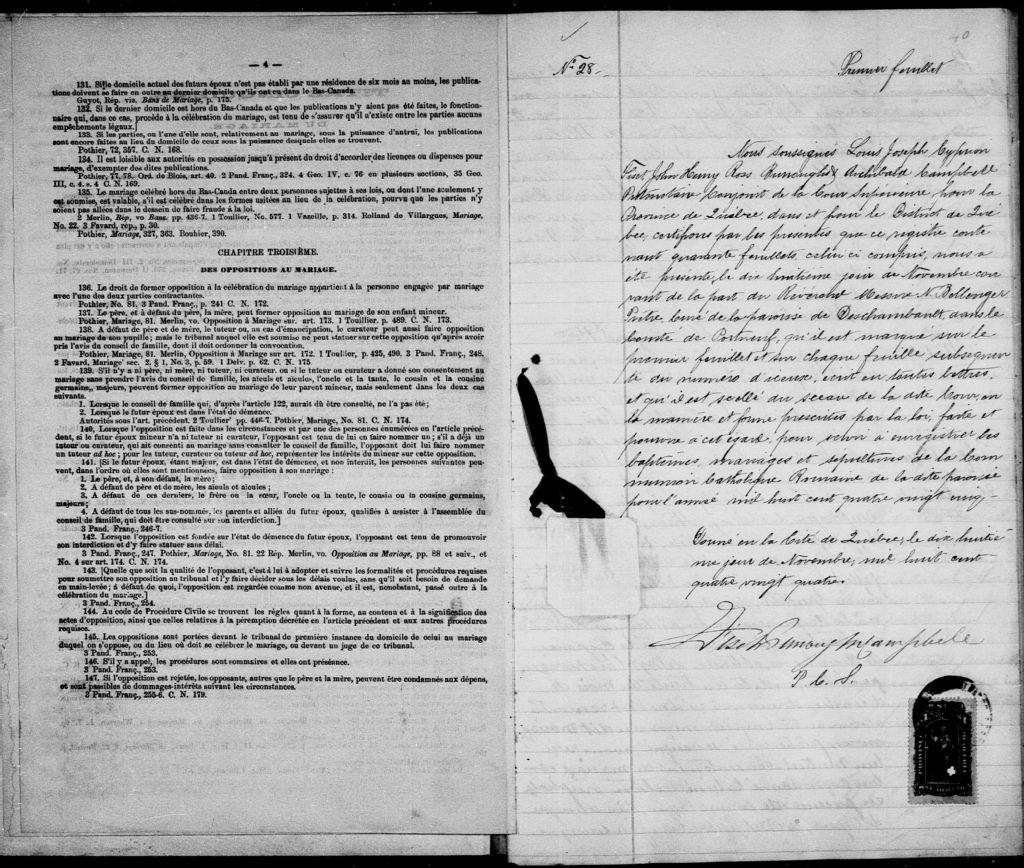 — 4 —
131. Si le domicile actuel des futurs époux n'est pas établi par une résidence de six mois au moins, les publica-
tions doivent se faire en outre au dernier domicile qu'ils ont eu dans le Bas-Canada.
Guyot, Rép. vis. Bans de Mariage, p. 175.
132. Si le dernier domicile est hors du Bas-Canada et que les publications n'y aient pas été faites, le fonction-
naire qui, dans ce cas, procède à la célébration du mariage, est tenu de s'assurer qu'il n'existe entre les parties aucuns
empêchements légaux.]
133. Si les parties, ou l'une d'elles sont, relativement au mariage, sous la puissance d'autrui, les publications
sont encore faites au lieu du domicile de ceux sous la puissance desquels elles se trouvent.
Pothier, 72, 357. C. N. 168.
134. Il est loisible aux autorités en possession jusqu'à présent du droit d'accorder des licences ou dispenses pour
mariage, d'exempter des dites publications.
Pothier, 77, 78. Ord. de Blois, art. 40. 2 Pand. Franç., 324. 4 Geo. IV, c. 76 en plusieurs sections, 35 Geo.
III, c. 4. s. 4 C. N. 169.
135. Le mariage célébré hors du Bas-Canada entre deux personnes sujettes à ses lois, ou dont l'une seulement y
est soumise, est valable, s'il est célébré dans les formes usitées au lieu de la célébration, pourvu que les parties n'y
soient pas allées dans le dessein de faire fraude à la loi.
2 Merlin, Rép, vo Bans. pp. 436-7. 1 Toullier, No. 577. 1 Vazeille, p. 314. Rolland de Villargues, Mariage,
No. 22. 3 Favard, rép., p. 30.
Pothier, Mariage, 327, 363. Bouhier, 390.
CHAPITRE TROISIÈME.
DES OPPOSITIONS AU MARIAGE.
136. Le droit de former opposition à la célébration du mariage appartient à la personne engagée par mariage
avec l'une des deux parties contractantes.
Pothier, No. 81. 3 Pand. Franç., p. 241 C. N. 172.
137. Le père, et à défaut du père, la mère, peut former opposition au mariage de son enfant mineur.
Pothier, Mariage, 81. Merlin, vo. Opposition à Mariage sur. art. 173. 1 Toullier. p. 489. C. N. 173.
138. A défaut de père et de mère, le tuteur ou, au cas d'émancipation, le curateur peut aussi faire opposition
au mariage de son pupille; mais le tribunal auquel elle est soumise ne peut statuer sur cette opposition qu'après avoir
pris l'avis du conseil de famille, dont il doit ordonner la convocation.
Pothier, Mariage, 81. Merlin, Opposition à Mariage sur art. 172. 1 Toullier, p. 425, 490. 3 Pand. Franç., 248.
2 Favard, Mariage' sec. 2. § 1, No. 3, p. 59. 1 Delv., p. 62. C. N. 175
139. S'il n'y a ni père, ni mère, ni tuteur, ni curateur, ou si le tuteur ou curateur a donné son consentement au
mariage sans prendre l'avis du conseil de famille, les aïeuls et aïeules, l'oncle et la tante, le cousin et la cousine
germains, majeurs, peuvent former opposition au mariage de leur parent mineur, mais seulement dans les deux cas
suivants.
1. Lorsque le conseil de famille qui, d'après l'article 122, aurait dû être consulté, ne l'a pas été;
2. Lorsque le futur époux est dans l'état de démence.
Autorités sous l'art. précédent. 2 Toullier pp. 446-7. Pothier, Mariage, No. 81. C. N. 174.
140. Lorsque l'opposition est faite dans les circonstances et par une des personnes énumérées en l'article précé-
dent, si le futur époux mineur n'a ni tuteur ni curateur, l'opposant est tenu de lui en faire nommer un; s'il a déjà un
tuteur ou curateur, qui ait consenti au mariage sans consulter le conseil de famille, l'opposant doit lui faire nommer
un tuteur ad hoc; pour les tuteur, curateur ou tuteur ad hoc, représenter les intérêts du mineur sur cette opposition.
141. [Si le futur époux, étant majeur, est dans l'état de démence, et non interdit, les personnes suivantes peu-
vent, dans l'ordre où elles sont mentionnées, faire opposition à son mariage:
1. Le père, et, à son défaut, la mère;
2. A défaut de père et de mère, les aïeuls et aïeules;
3. A défaut de ces derniers, le frère ou la sœur, l'oncle ou la tente, le cousin ou la cousine germains,
majeurs;
4. A défaut de tous les sus-nommés, les parents et alliés du futur époux, qualifiés à assister à l'assemblée du
conseil de famille, qui doit être consulté sur son interdiction.]
3 Pand. Franç., 246-7.
142. Lorsque l'opposition est fondée sur l'état de démence du futur époux, l'opposant est tenu de promouvoir
son interdiction et d'y faire statuer sans délai.
3 Pand. Franç., 247. Pothier, Mariage, No. 81. 22 Rép. Merlin, vo. Opposition au Mariage, pp. 88 et suiv., et
No. 4 sur art. 174. C. N. 174.
143. [Quelle que soit la qualité de l'opposant, c'est à lui à adopter et suivre les formalités et procédures requises
pour soumettre son opposition au tribunal et l'y faire décider sous les délais voulus, sans qu'il soit besoin de demande
en main-levée; à défaut de quoi, l'opposition est regardée comme non avenue, et il est, nonobstant, passé outre à la
célébration du mariage.]
3 Pand. Franç., 254.
144. Au code de Procédure Civile se trouvent les règles quant à la forme, au contenu et à la signification des
actes d'opposition, ainsi que celles relatives à la péremption décrétée en l'article précédent et aux autres procédures
requises.
145. Les oppositions sont portées devant le tribunal de première instance du domicile de celui au mariage
duquel on s'oppose, ou du lieu où doit se célébrer le mariage, ou devant un juge de ce tribunal.
3 Pand. Franç., 253.
146. S'il y a appel, les procédures sont sommaires et elles ont préséance.
3 Pand. Franç., 253.
147. Si l'opposition est rejetée, les opposants, autres que le père et la mère, peuvent être condamnés aux dépens,
et sont passibles de dommages-intérêts suivant les circonstances.
3 Pand. Franç., 255-6. C. N. 179.
40
No 28
Premier feuillet
Nous soussignés Louis Joseph Cyprien
Fiset John Henry Ross Burroughs & Archibald Campbell
Protonotaire Conjoint de la Cour Supérieure pour la
Province de Québec, dans et pour le District de Qué
bec, certifions par les présentes que ce registre conte
nant quarante feuillets, celui ci compris, nous a
été présenté, le dix huitième jour de Novembre cou
rant de la part du Révérend Messire N. Bellenger
Prêtre, Curé de la paroisse de Deschambault, dans le
comté de Portneuf, qu'il est marqué sur le
premier feuillet et sur chaque feuillet subséquen
te du numéro d'iceux, écrit en toutes lettres,
et qu'il est scellé du sceau de la dite Cour, en
la manière et forme prescrites par la loi, faite et
pourvue à cet égard, pour servir à enregistrer les
baptêmes, mariages et sépultures de la Com
munion Catholique Romaine de la dite paroisse
pour l'année mil huit cent quatre vingt cinq.
Donné en la Cité de Québec, le dix huitiè
me jour de Novembre, mil huit cent
quatre vingt quatre.
Fiset Burroughs Campbell
P. C. S.
ONE DOLLAR